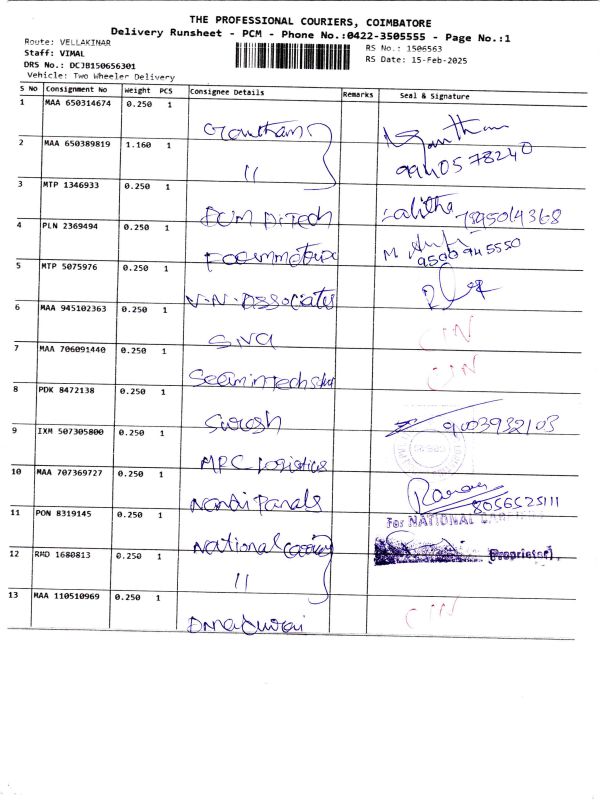 THE PROFESSIONAL COURIERS, COIMBATORE
Delivery Runsheet - PCM - Phone No.:0422-3505555 - Page No.:1
Route: VELLAKINAR
RS No.: 1506563
Staff: VIMAL
RS Date: 15-Feb-2025
DRS No.: DCJB150656301
Vehicle: Two Wheeler Delivery
S No Consignment No Weight PCS Consignee Details Remarks Seal & Signature
1 MAA 650314674 0.250 1 Gowtham
2 MAA 650389819 1.160 1 11 9940578240
3 MTP 1346933 0.250 1 Tech Lalitha 7845014368
4 PLN 2369494 0.250 1 M. 9500945550
5 MTP 5075976 0.250 1 V.N. Associates
6 MAA 945102363 0.250 1 Siva CIN
7 MAA 706091440 0.250 1 CIN
8 PDK 8472138 0.250 1 Suresh 9003932103
9 IXM 507305800 0.250 1 MPC Logistics
10 MAA 707369727 0.250 1 Nandi Panals 8056525111
11 PON 8319145 0.250 1 National For NATIONAL
12 RMD 1680813 0.250 1 11 (Proprietor)
13 MAA 110510969 0.250 1 CIN